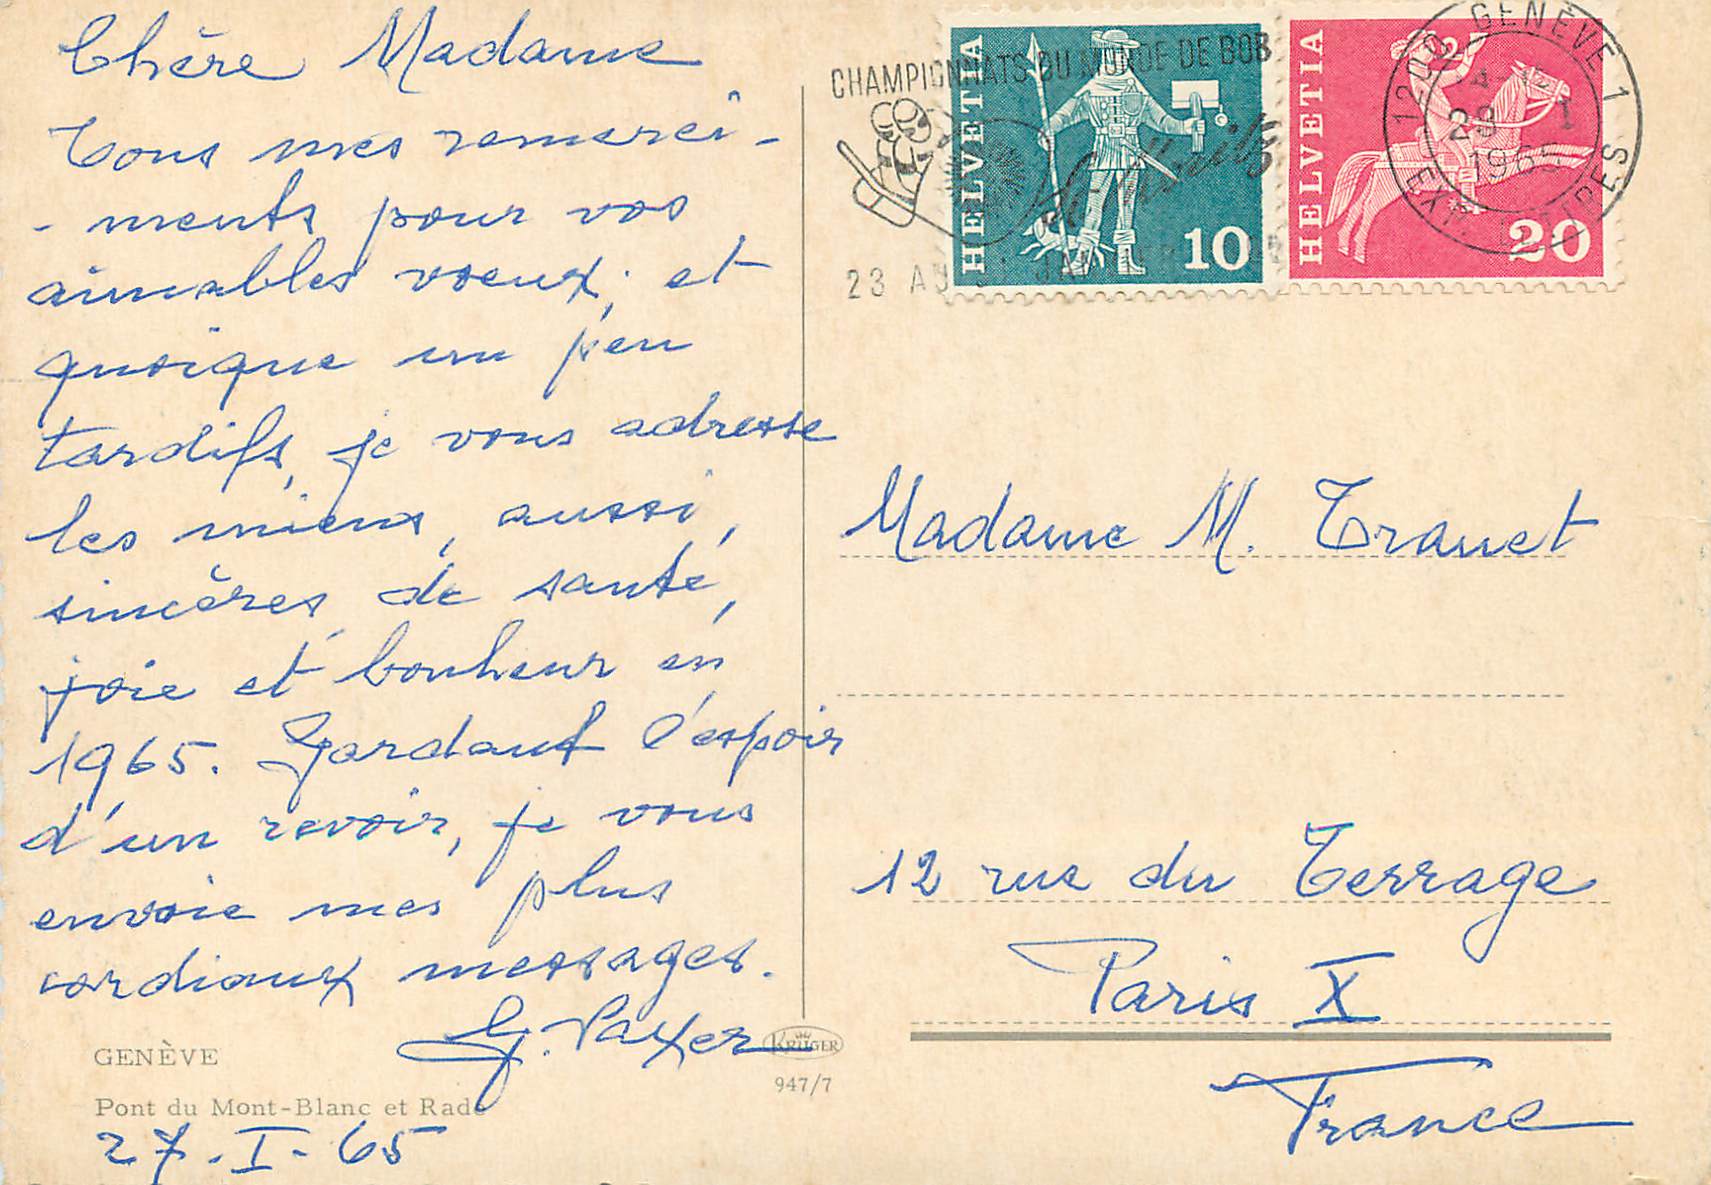 Chère Madame
Tous mes remerci-
-ments pour vos
aimables voeux, et
quoique un peu
tardifs, je vous adresse
les miens, aussi,
sincères de santé,
joie et bonheur en
1965. Gardant l'espoir
d'un revoir, je vous
envoie mes plus
cordiaux messages.
GENÈVE
Pont du Mont-Blanc et Rade
27.I.65
KRÜGER
947/7
CHAMPIONNATS DU MONDE DE BOB
23
HELVETIA
10
HELVETIA
20
1200 GENÈVE 1
1965
Madame M.
12 rue du Terrage
Paris X
France